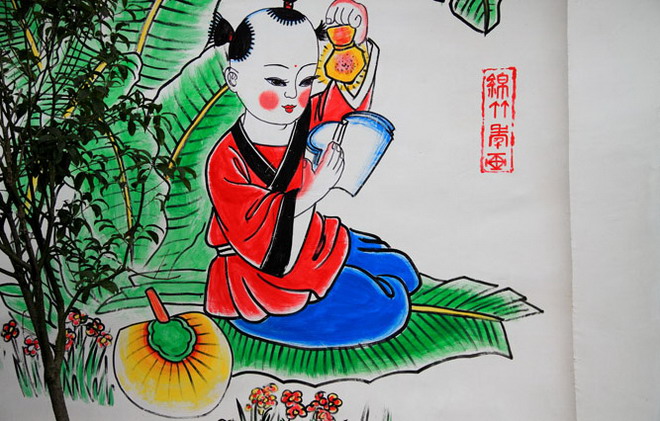 綿竹年画